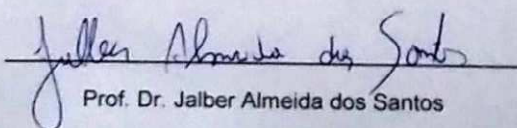 Jalber Almeida dos Santos
Prof. Dr. Jalber Almeida dos Santos